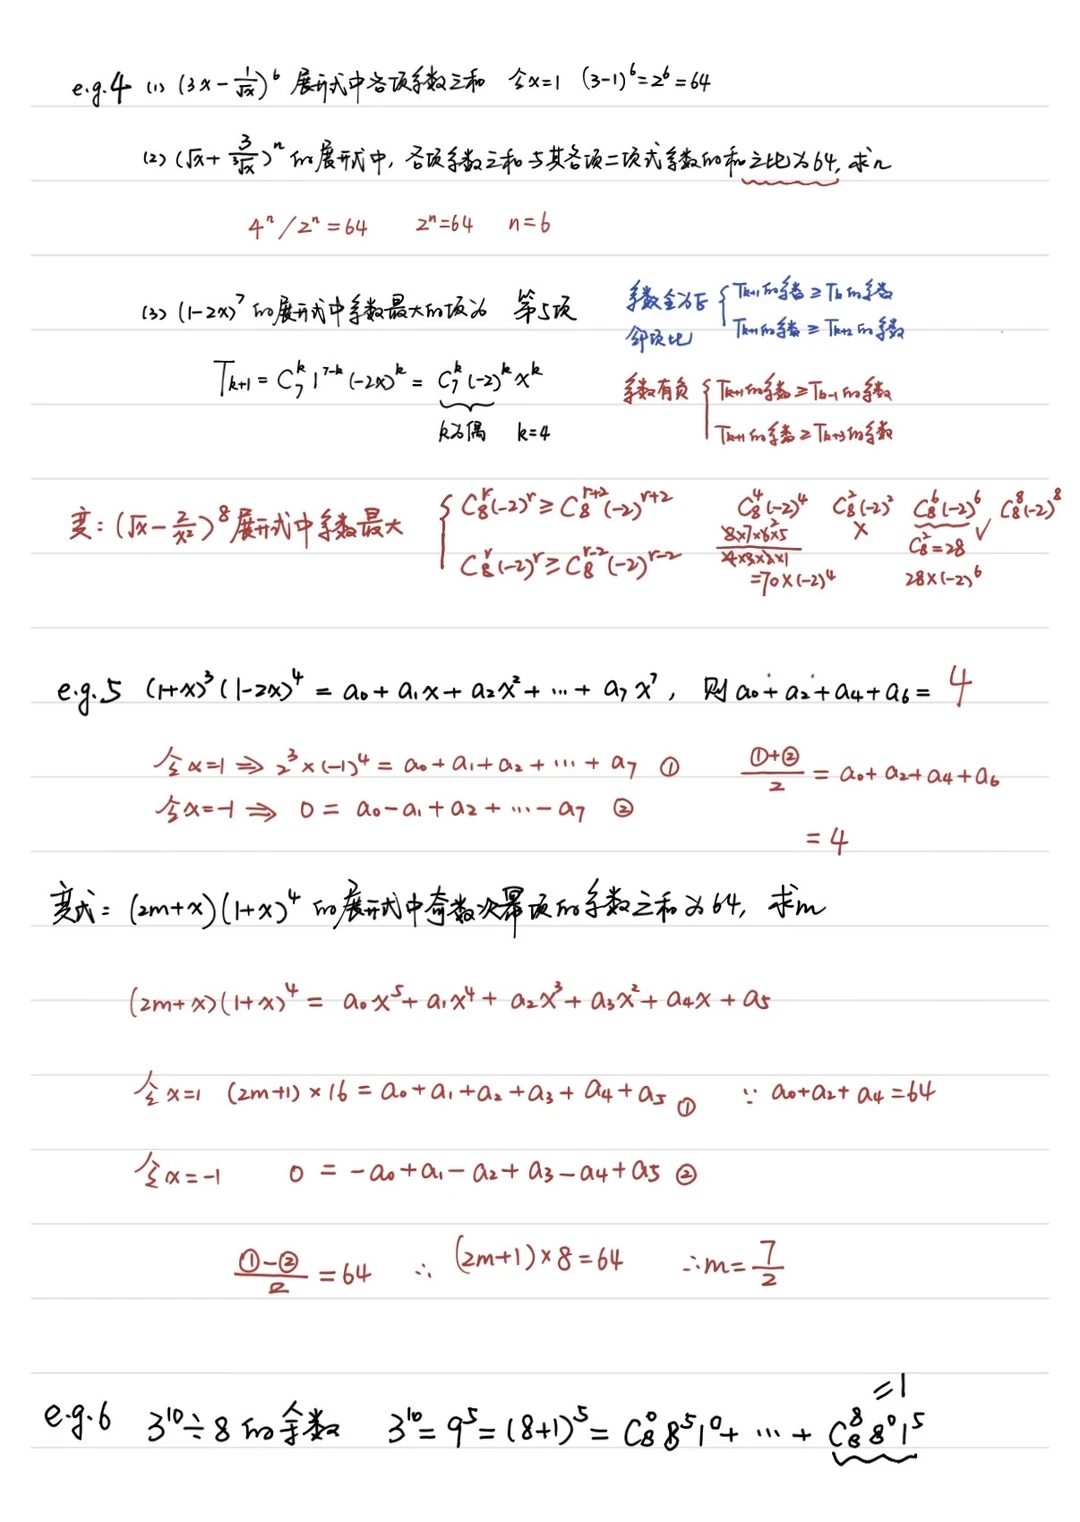 e.g.4 (1) (3x - 1/√x)^6 展开式中各项系数之和 令x=1 (3-1)^6=2^6=64
(2) (√x + 3/∛x)^n 的展开式中, 各项系数之和与其各项二项式系数的和之比为64, 求n
4^n/2^n=64 2^n=64 n=6
(3) (1-2x)^7 的展开式中系数最大的项为 第5项
T_{k+1} = C_7^k 1^{7-k} (-2x)^k = C_7^k (-2)^k x^k
k为偶 k=4
系数全为正 { T_{k+1}的系数 ≥ T_k的系数
邻项比 T_{k+1}的系数 ≥ T_{k+2}的系数
系数有负 { T_{k+1}的系数 ≥ T_{k-1}的系数
T_{k+1}的系数 ≥ T_{k+3}的系数
变: (√x - 2/x²)^8 展开式中系数最大
{ C_8^r (-2)^r ≥ C_8^{r+2} (-2)^{r+2}
C_8^r (-2)^r ≥ C_8^{r-2} (-2)^{r-2}
C_8^4 (-2)^4 C_8^2 (-2)^2 C_8^6 (-2)^6 C_8^8 (-2)^8
8×7×6×5 / 4×3×2×1 × C_8^2=28 ✓
=70×(-2)^4 28×(-2)^6
e.g.5 (1+x)^3 (1-2x)^4 = a₀ + a₁x + a₂x² + … + a₇x^7, 则 a₀+a₂+a₄+a₆= 4
令x=1 ⇒ 2^3×(-1)^4 = a₀+a₁+a₂+…+a₇ ① (①+②)/2 = a₀+a₂+a₄+a₆
令x=-1 ⇒ 0 = a₀-a₁+a₂+…-a₇ ②
= 4
变式: (2m+x)(1+x)^4 的展开式中奇数次幂项的系数之和为64, 求m
(2m+x)(1+x)^4 = a₀x^5+a₁x^4+a₂x^3+a₃x²+a₄x+a₅
令x=1 (2m+1)×16 = a₀+a₁+a₂+a₃+a₄+a₅ ① ∵ a₀+a₂+a₄=64
令x=-1 0 = -a₀+a₁-a₂+a₃-a₄+a₅ ②
(①-②)/2 = 64 ∴ (2m+1)×8=64 ∴m=7/2
=1
e.g.6 3^10÷8的余数 3^10=9^5=(8+1)^5= C_8^0 8^5 1^0+ … + C_8^8 8^0 1^5